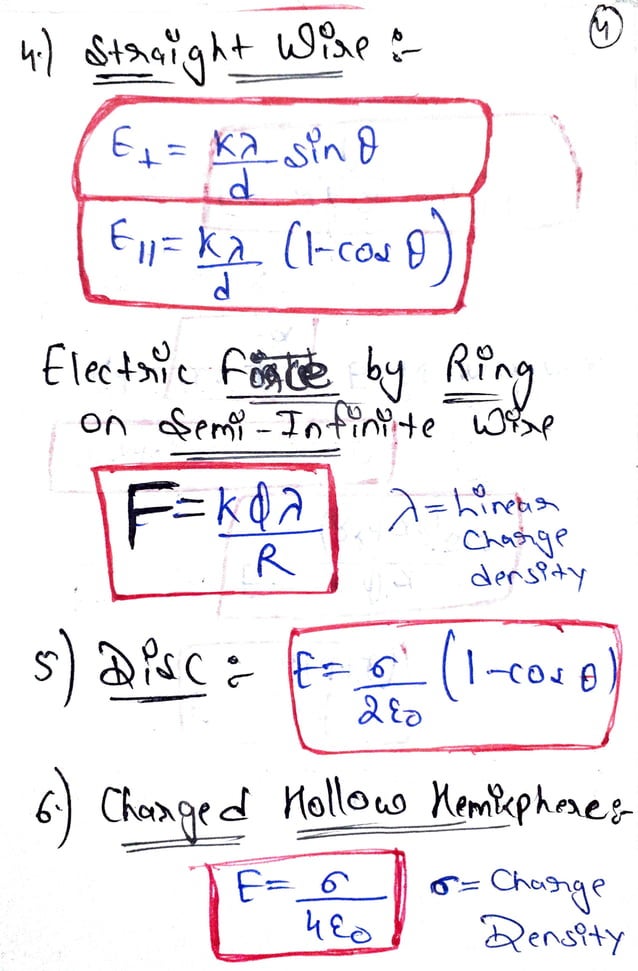 4
4.) Straight Wire :-
E⊥ = Kλ/d sin θ
E|| = Kλ/d (1-cos θ)
Electric Force by Ring
on Semi-Infinite Wire
F = KQλ/R
λ = Linear
Charge
density
5) Disc :- E = σ/2ε0 (1-cos θ)
6.) Charged Hollow Hemisphere:-
E = σ/4ε0
σ = Charge
Density